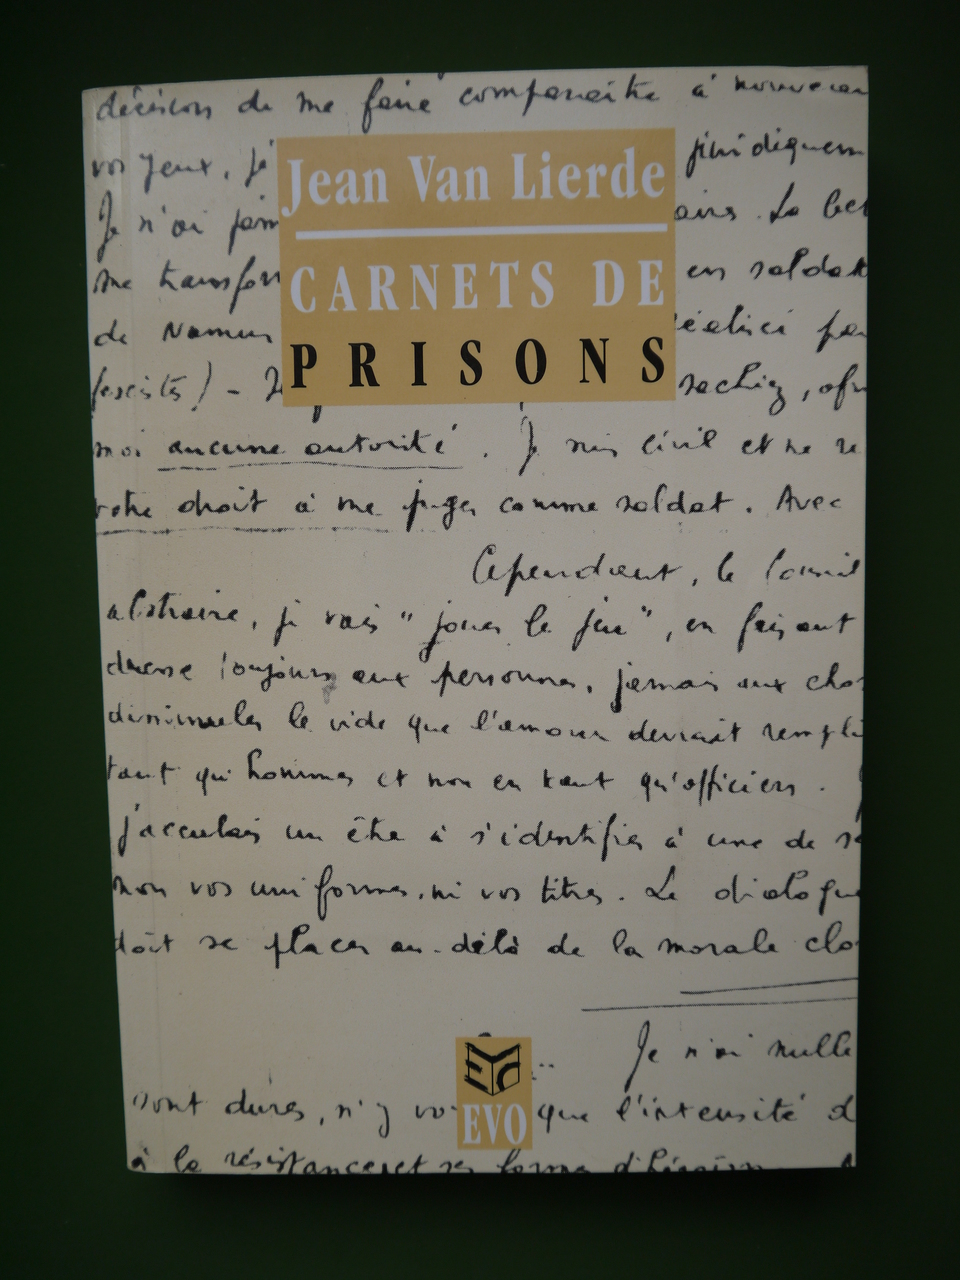 décision de me faire comparaître à nouveau
vos yeux, je
juridiquem
Jean Van Lierde
Je n'ai jam
aire. Le bet
CARNETS DE
me transfor
en soldat
PRISONS
de Namur
réalisé par
fascistes) - Je
sachiez,
moi aucune autorité. Je suis civil et ne re
votre droit à me juger comme soldat. Avec
Cependant, le Conseil
abstraire, je vais "jouer le jeu", en faisant
toujours aux personnes, jamais aux cho
dissimuler le vide que l'amour devrait rempli
tant qu'hommes et non en tant qu'officiers.
j'acculais un être à s'identifier à une de s
non vos uniformes, ni vos titres. Le dialogue
doit se placer au-delà de la morale clo
Je n'ai nulle
EVO
sont dures, n'y vo
que l'intensité d
EVO
à la résistance et sa forme